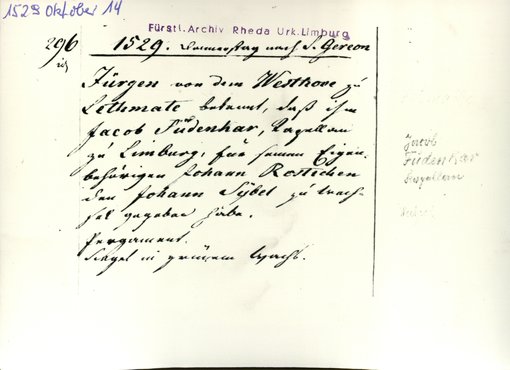 1529 Oktober 14
Fürstl. Archiv Rheda Urk. Limburg
296
1529. Donnerstag nach S. Gereon
Jürgen von dem Westhove zu
Lethmate bekennt, daß ihm
Jacob Tüdenhar, Kapellan
zu Limburg, für seinen Eigen-
behörigen Johann Rostschen
den Johann Sybel zu Wech-
sel gegeben habe.
Pergament.
Siegel in grünem Wachs.
Jacob
Tüdenhar
Kapellan